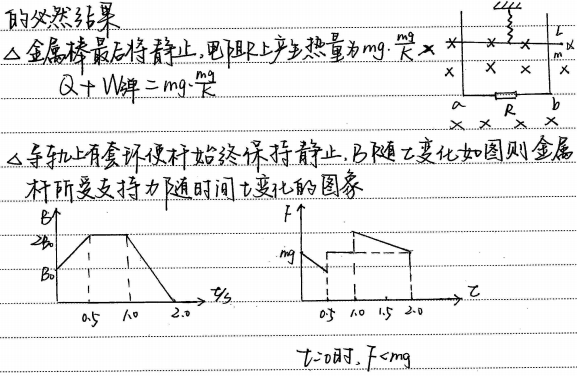 的必然结果
△ 金属棒最后将静止,电阻R上产生热量为mg·mg/K ×
Q + W弹 = mg·mg/K
L
m
a
R
b
△ 导轨上有套环使杆始终保持静止,B随t变化如图则金属
杆所受支持力随时间t变化的图象
B
2B₀
B₀
0.5 1.0 2.0 t/s
F
mg
0.5 1.0 1.5 2.0 t
t=0时,F<mg